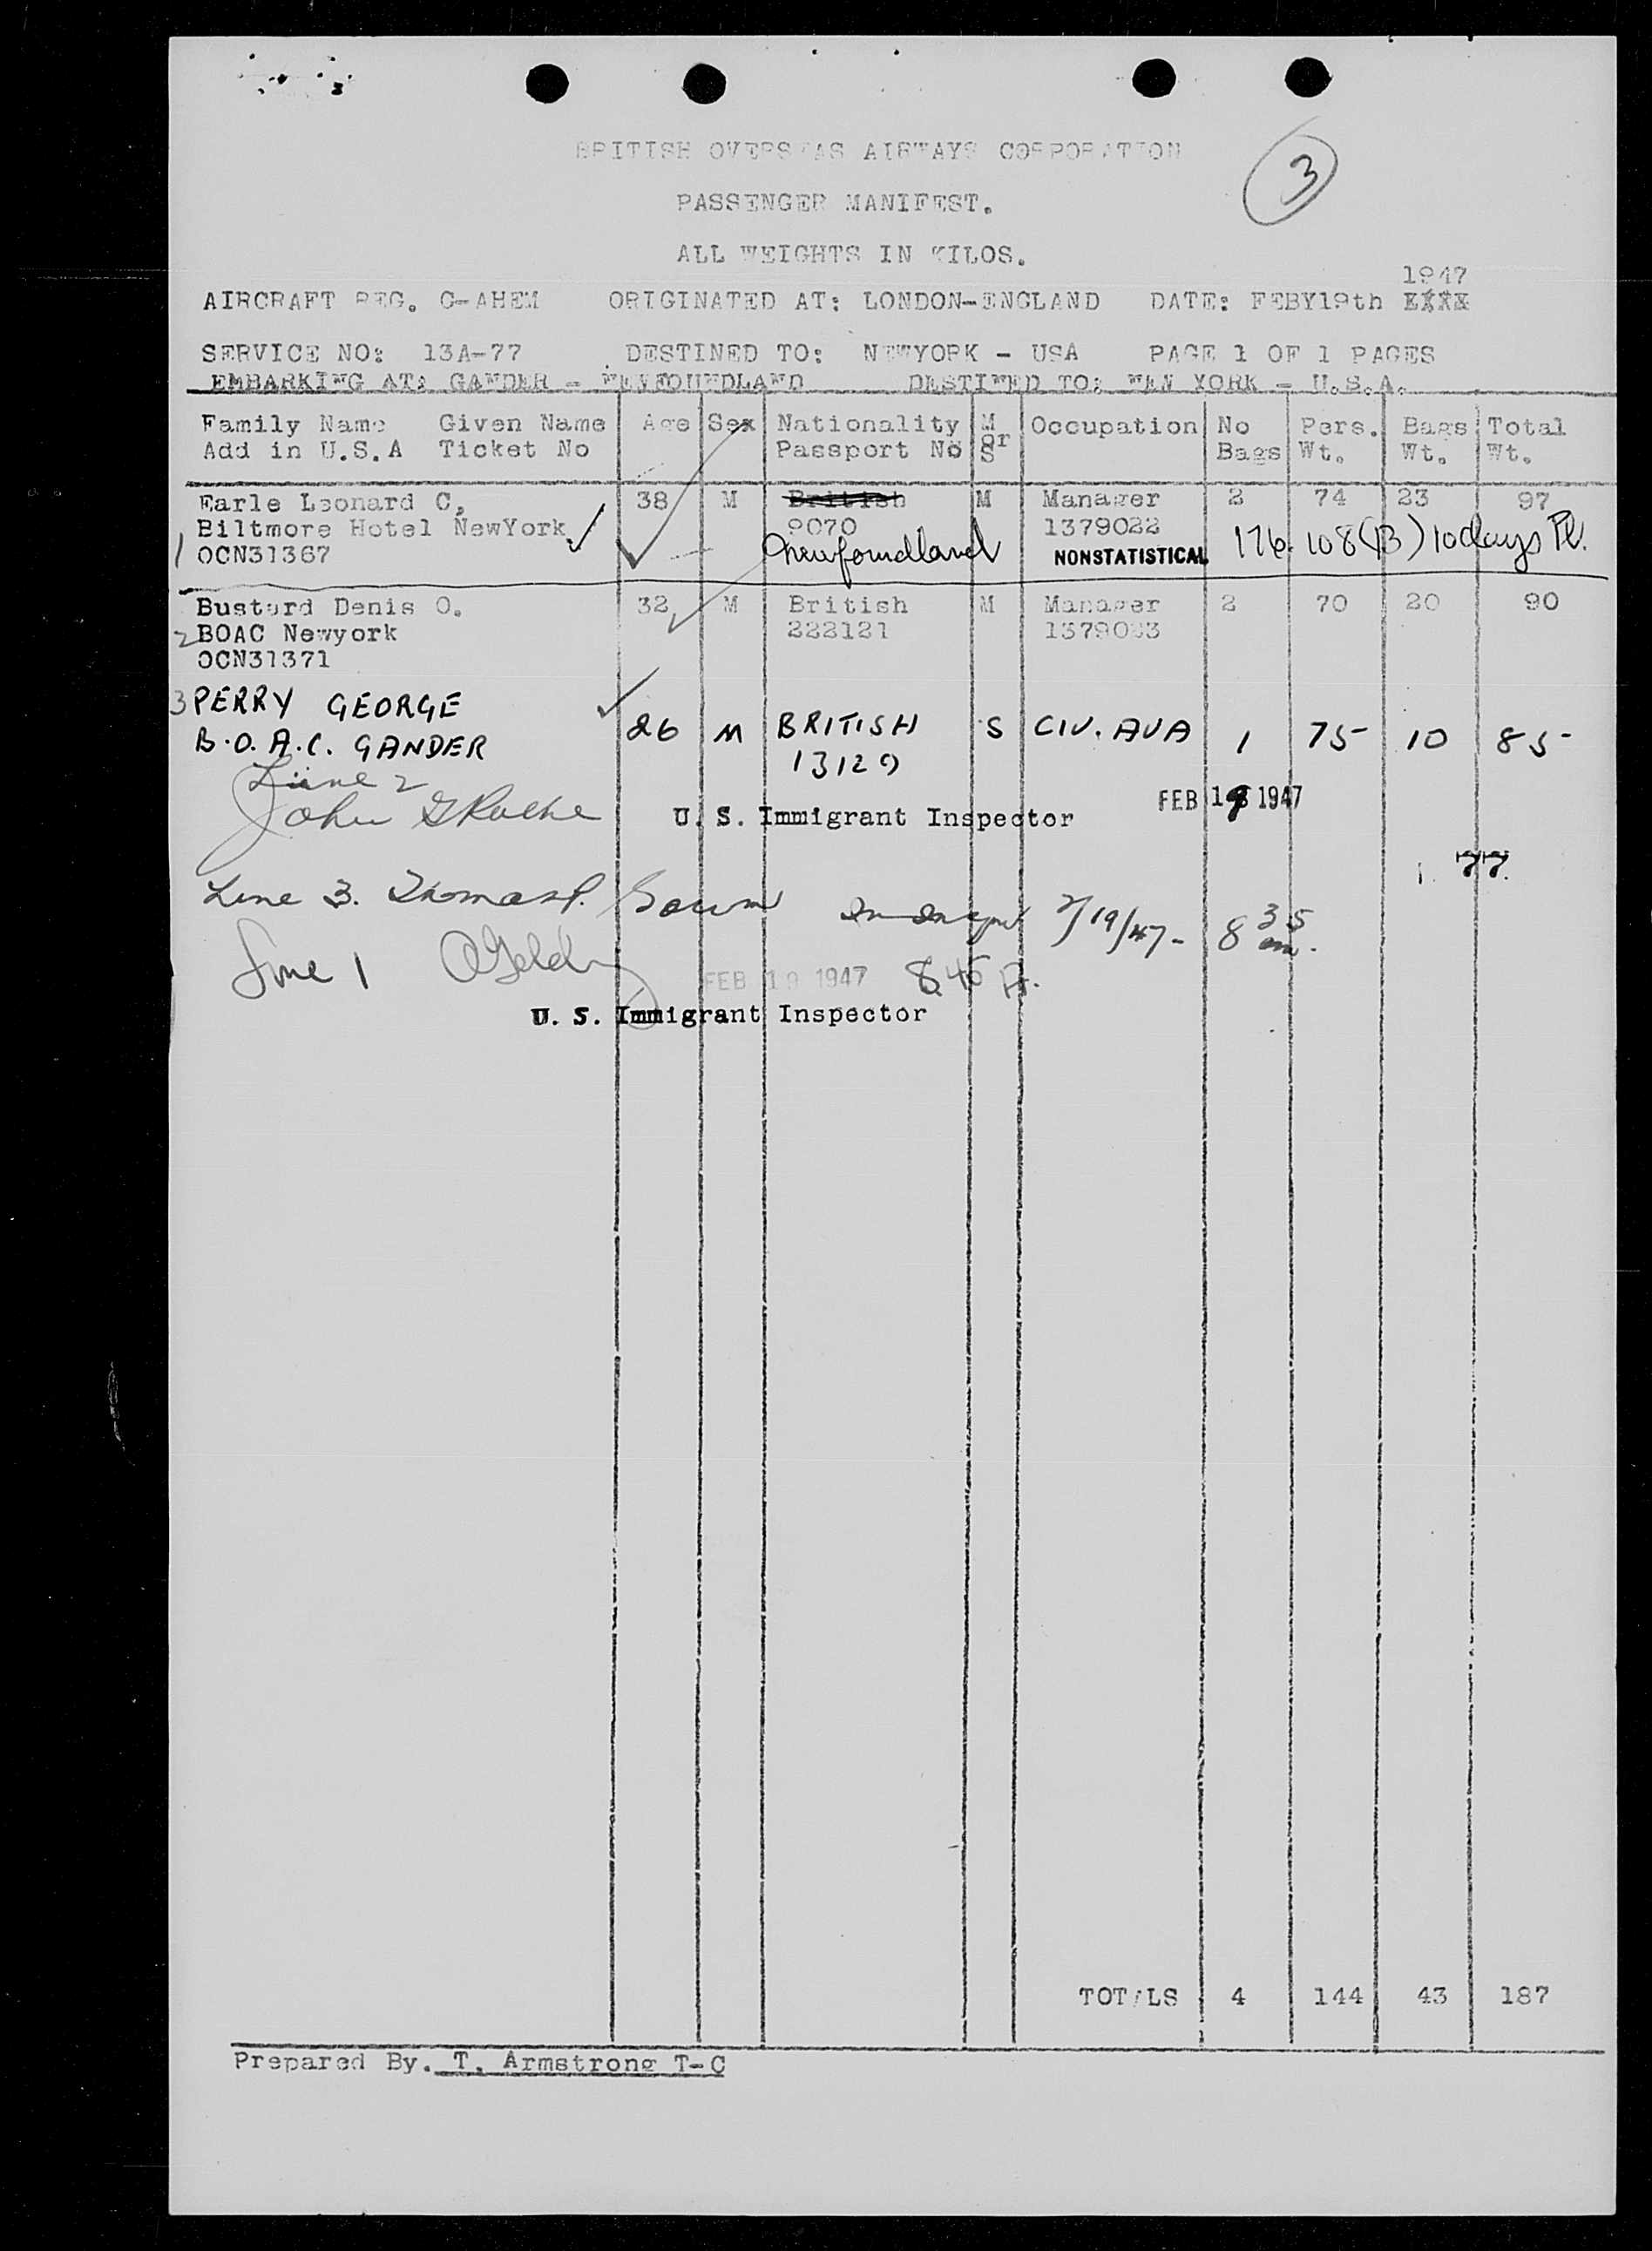 3
BRITISH OVERSEAS AIRWAYS CORPORATION
PASSENGER MANIFEST.
ALL WEIGHTS IN KILOS.
1947
AIRCRAFT REG. G-AHEM ORIGINATED AT: LONDON-ENGLAND DATE: FEBY19th
SERVICE NO: 13A-77 DESTINED TO: NEWYORK - USA PAGE 1 OF 1 PAGES
EMBARKING AT: GANDER - NEWFOUNDLAND DESTINED TO: NEW YORK - U.S.A.
Family Name Given Name Age Sex Nationality M Occupation No Pers. Bags Total
Add in U.S.A Ticket No Passport No or S Bags Wt. Wt. Wt.
Earle Leonard C, 38 M British M Manager 2 74 23 97
Biltmore Hotel NewYork 9070 1379022
1 OCN31367 Newfoundland NONSTATISTICAL 176.108(B) 10 days Pl.
Bustard Denis O. 32 M British M Manager 2 70 20 90
2 BOAC Newyork 222121 1379023
OCN31371
3 PERRY GEORGE 26 M BRITISH S CIV. AVA 1 75 10 85
B.O.A.C. GANDER 13129
Line 2
John G Roche U. S. Immigrant Inspector FEB 19 1947
77
Line 3. Thomas P. 2/19/47 - 8 35 am.
Line 1 FEB 19 1947 8.45 A.
U. S. Immigrant Inspector
TOTALS 4 144 43 187
Prepared By. T. Armstrong T-C